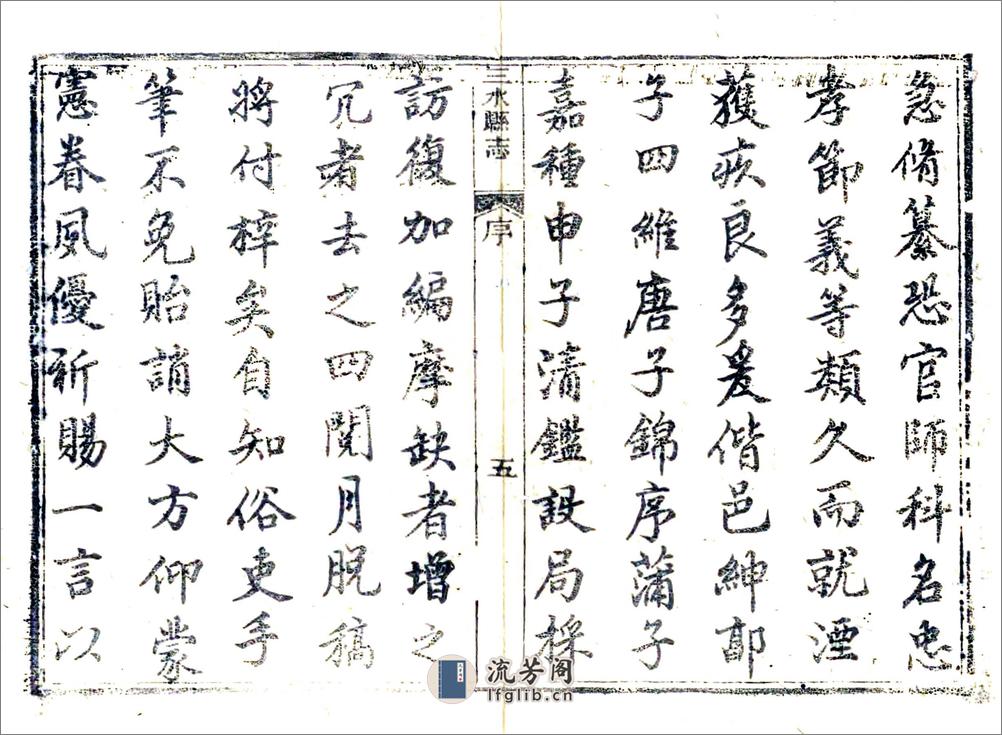 急脩纂恐官師科名忠
孝節義等類久而就湮
獲疚良多爰偕邑紳郭
子四維唐子錦序蒲子
嘉種申子清鑑設局採
三水縣志 序 五
訪復加編摩缺者增之
冗者去之四閱月脫稿
將付梓矣自知俗吏手
筆不免貽誚大方仰蒙
憲眷夙優祈賜一言以
流芳阁
lfglib.cn